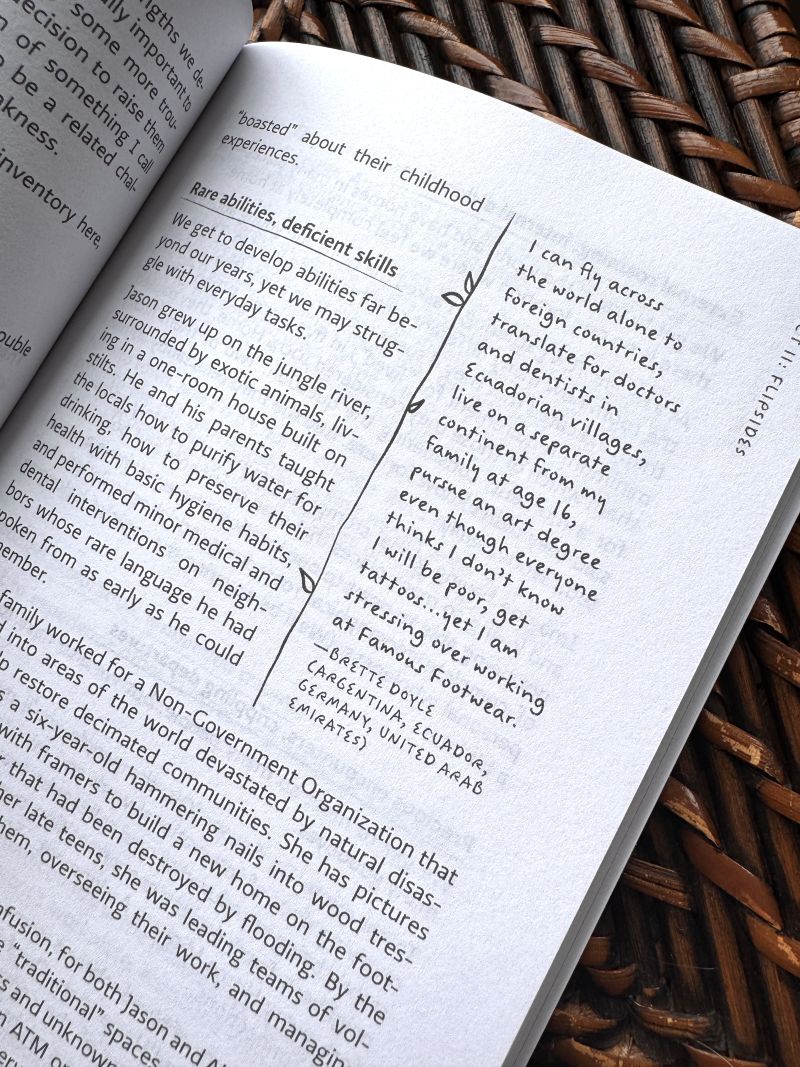 ngths we de-
ally important to
some more trou-
decision to raise them
n of something I call
be a related chal-
akness.
inventory here,
ouble
"boasted" about their childhood
experiences.
Rare abilities, deficient skills
We get to develop abilities far be-
yond our years, yet we may strug-
gle with everyday tasks.
Jason grew up on the jungle river,
surrounded by exotic animals, liv-
ing in a one-room house built on
stilts. He and his parents taught
the locals how to purify water for
drinking, how to preserve their
health with basic hygiene habits,
and performed minor medical and
dental interventions on neigh-
bors whose rare language he had
poken from as early as he could
ember.
I can fly across
the world alone to
foreign countries,
translate for doctors
and dentists in
Ecuadorian villages,
live on a separate
continent from my
family at age 16,
pursue an art degree
even though everyone
thinks I don't know
I will be poor, get
tattoos...yet I am
stressing over working
at Famous Footwear.
—BRETTE DOYLE
(ARGENTINA, ECUADOR,
GERMANY, UNITED ARAB
EMIRATES)
family worked for a Non-Government Organization that
d into areas of the world devastated by natural disas-
lp restore decimated communities. She has pictures
s a six-year-old hammering nails into wood tres-
with framers to build a new home on the foot-
r that had been destroyed by flooding. By the
her late teens, she was leading teams of vol-
hem, overseeing their work, and managin
nfusion, for both Jason and Al
e "traditional" spaces
s and unknown
n ATM or
CT II: FLIPSIDES